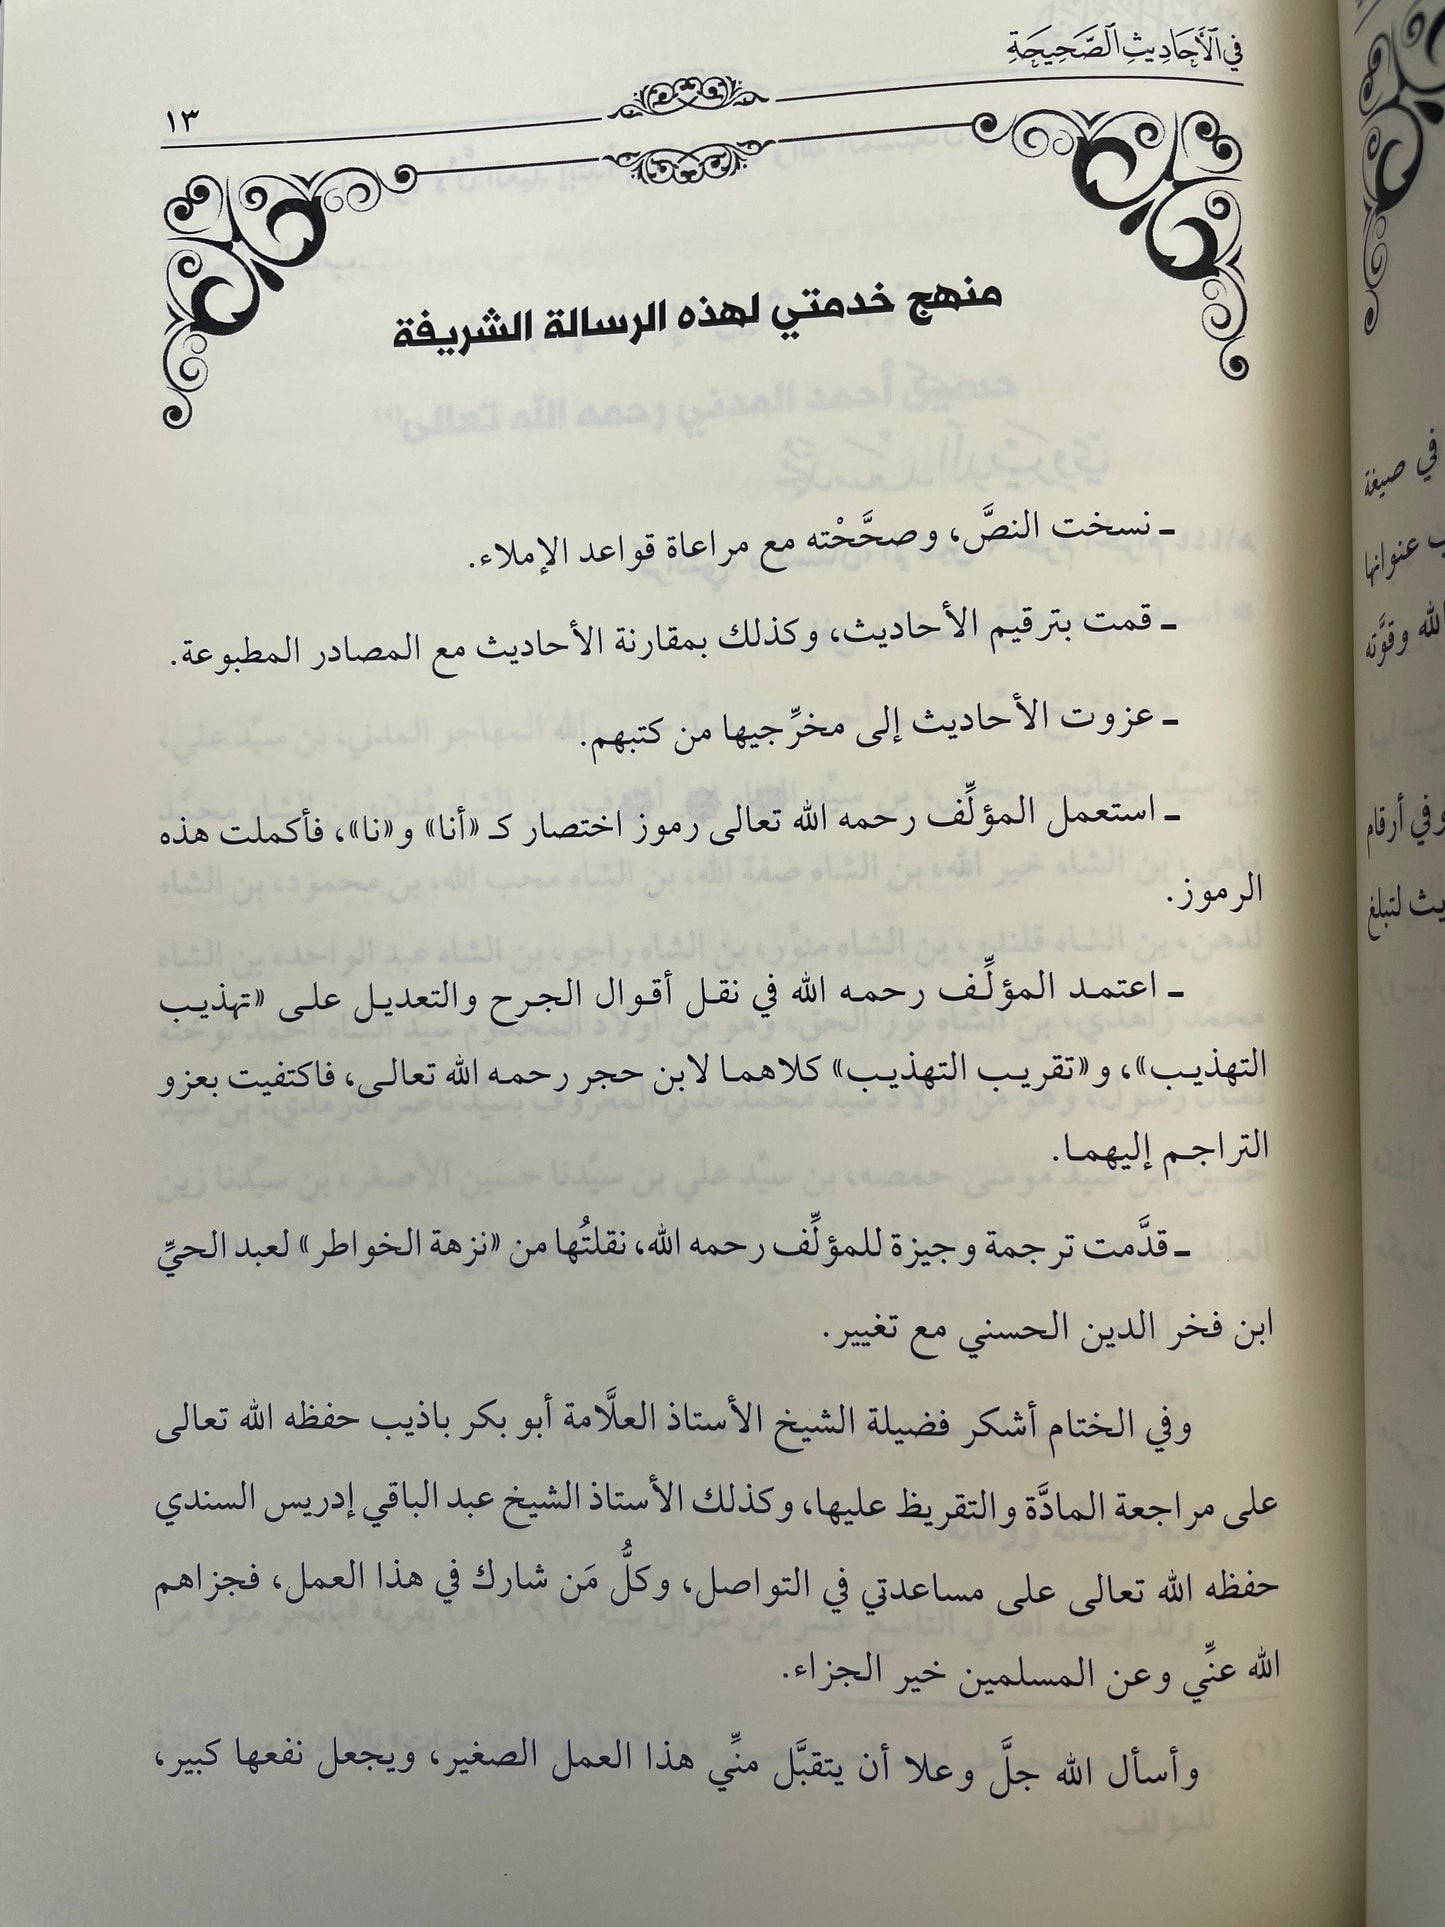 في الأحاديث الصحيحة
١٣
منهج خدمتي لهذه الرسالة الشريفة
ـ نسخت النصَّ، وصحَّحْته مع مراعاة قواعد الإملاء.
ـ قمت بترقيم الأحاديث، وكذلك بمقارنة الأحاديث مع المصادر المطبوعة.
ـ عزوت الأحاديث إلى مخرِّجيها من كتبهم.
ـ استعمل المؤلِّف رحمه الله تعالى رموز اختصار كـ «أنا» و«نا»، فأكملت هذه
الرموز.
ـ اعتمد المؤلِّف رحمه الله في نقل أقوال الجرح والتعديل على «تهذيب
التهذيب»، و«تقريب التهذيب» كلاهما لابن حجر رحمه الله تعالى، فاكتفيت بعزو
التراجم إليهما.
ـ قدَّمت ترجمة وجيزة للمؤلِّف رحمه الله، نقلتُها من «نزهة الخواطر» لعبد الحيِّ
ابن فخر الدين الحسني مع تغيير.
وفي الختام أشكر فضيلة الشيخ الأستاذ العلَّامة أبو بكر باذيب حفظه الله تعالى
على مراجعة المادَّة والتقريظ عليها، وكذلك الأستاذ الشيخ عبد الباقي إدريس السندي
حفظه الله تعالى على مساعدتي في التواصل، وكلُّ مَن شارك في هذا العمل، فجزاهم
الله عنِّي وعن المسلمين خير الجزاء.
وأسأل الله جلَّ وعلا أن يتقبَّل منِّي هذا العمل الصغير، ويجعل نفعها كبير،
في صيغة
عنوانها
الله وقوَّته
وفي أرقام
لتبلغ